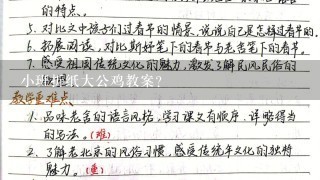 的特点。
5. 对比文中孩子们过春节的情景,说说自己是怎样过春节的。
6. 拓展阅读,对比斯好笔下的春节与老舍笔下的春节。
7. 感受祖国传统文化的魅力,激发了解民风民俗的
小班撕纸大公鸡教案?
教学重难点
1. 品味老舍的语言风格,学习课文有顺序、详略得当
的写法。(难)
2. 了解老北京的风俗习惯,感受传统年文化的独特
魅力。(重)